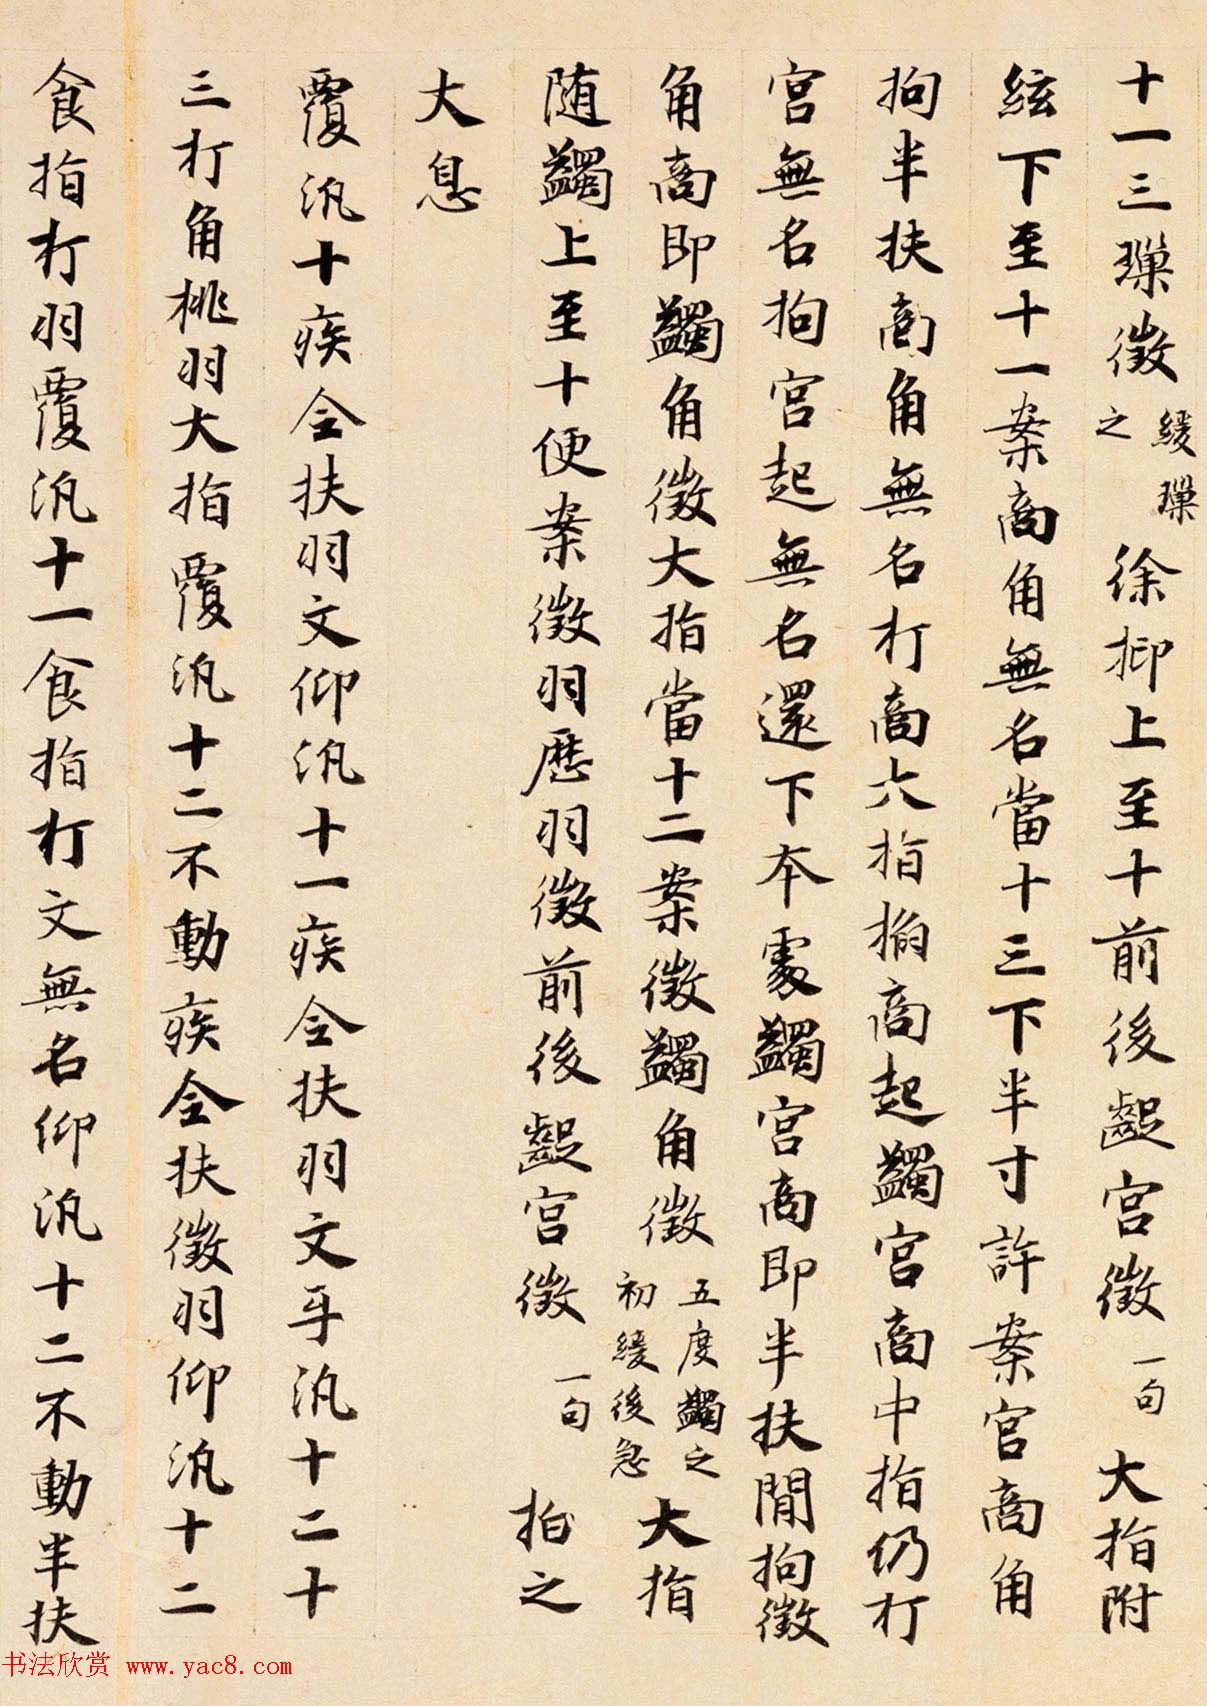 十一三璅徵緩璅之徐抑上至十前後齪宮徵一句大指附
絃下至十一案商角無名當十三下半寸許案宮商角
拘半扶商角無名打商六指搊商起蠲宮商中指仍打
宮無名拘宮起無名還下本處蠲宮商即半扶間拘徵
角商即蠲角徵大指當十二案徵蠲角徵五度蠲之初緩後急大指
随蠲上至十便案徵羽歷羽徵前後齪宮徵一句拍之
大息
覆汎十疾全扶羽文仰汎十一疾全扶羽文牙汎十二十
三打角桃羽大指覆汎十二不動疾全扶徵羽仰汎十二
食指打羽覆汎十一食指打文無名仰汎十二不動半扶
书法欣赏 www.yac8.com